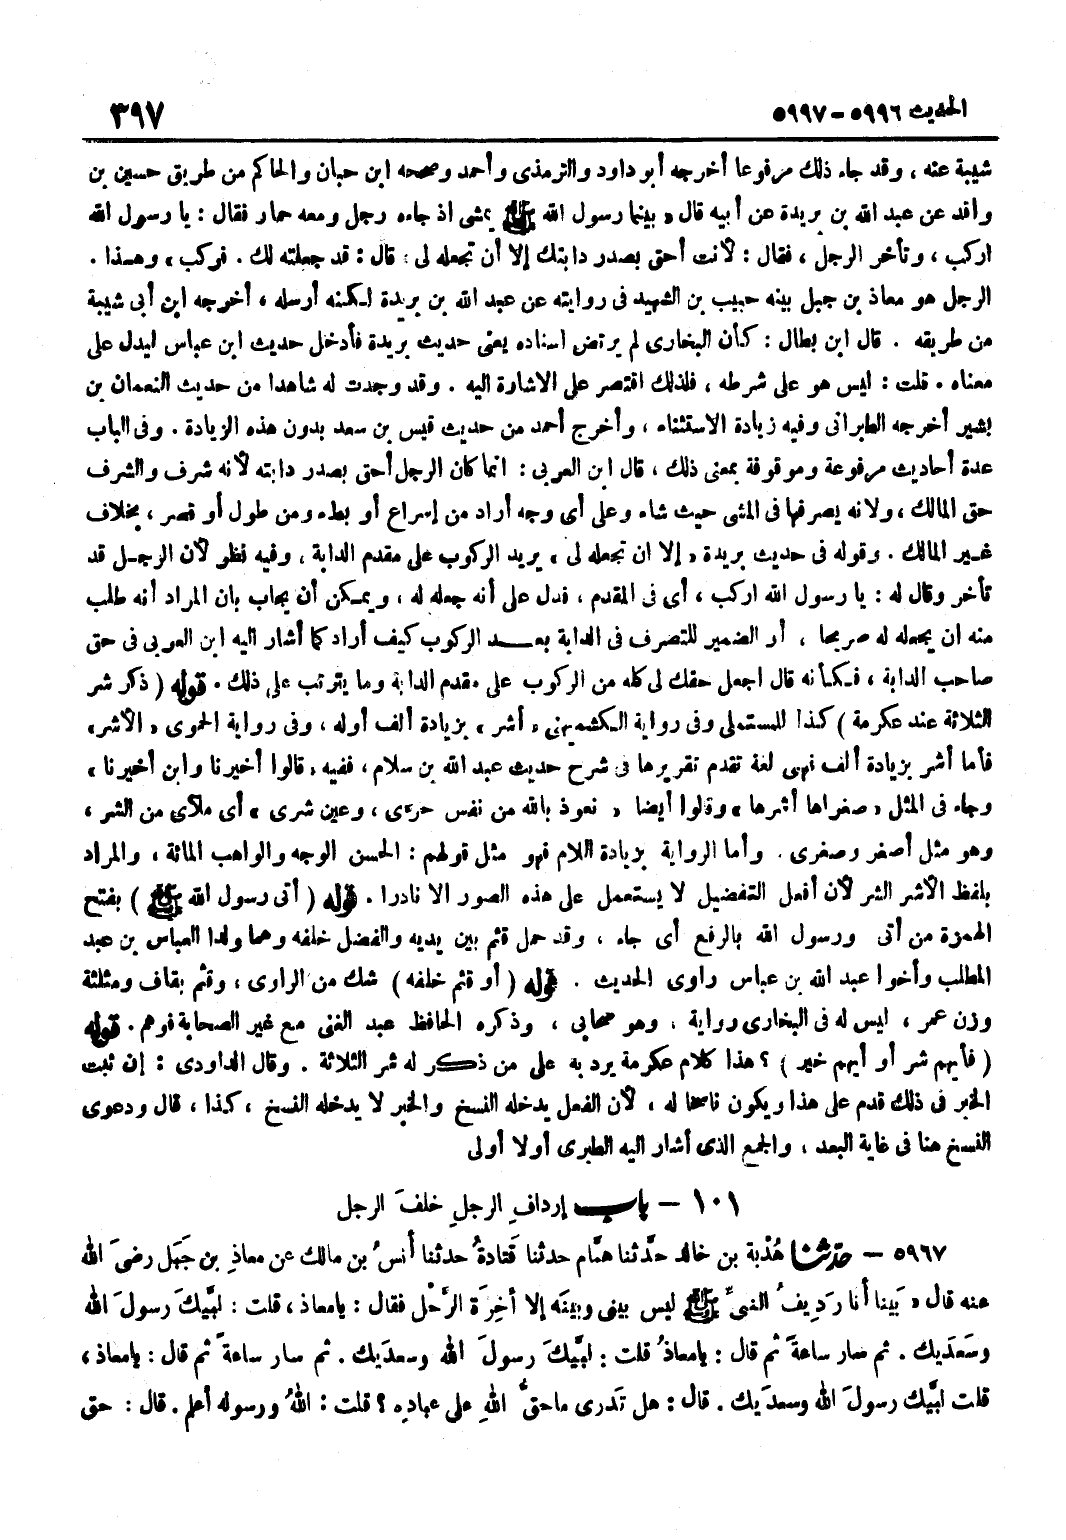 الحديث ٥٩٩٦ - ٥٩٩٧
٣٩٧
شيبة عنه ، وقد جاء ذلك مرفوعا أخرجه أبو داود والترمذى وأحمد وصححه ابن حبان والحاكم من طريق حسين بن
واقد عن عبد الله بن بريدة عن أبيه قال « بينما رسول الله ﷺ يمشى اذ جاءه رجل ومعه حمار فقال : يا رسول الله
اركب ، وتأخر الرجل ، فقال : لأنت أحق بصدر دابتك إلا أن تجعله لى ، قال : قد جعلته لك . فركب » وهـذا .
الرجل هو معاذ بن جبل بينه حبيب بن الشهيد فى روايته عن عبد الله بن بريدة لكنه أرسله ، أخرجه ابن أبى شيبة
من طريقه . قال ابن بطال : كأن البخارى لم يرتض اسناده يعنى حديث بريدة فأدخل حديث ابن عباس ليدل على
معناه . قلت : ليس هو على شرطه ، فلذلك اقتصر على الاشارة اليه . وقد وجدت له شاهدا من حديث النعمان بن
بشير أخرجه الطبرانى وفيه زيادة الاستثناء ، وأخرج أحمد من حديث قيس بن سعد بدون هذه الزيادة . وفى الباب
عدة أحاديث مرفوعة وموقوفة بمعنى ذلك ، قال ابن العربى : انما كان الرجل أحق بصدر دابته لأنه شرف والشرف
حق المالك ، ولانه يصرفها فى المشى حيث شاء وعلى أى وجه أراد من إسراع أو بطء ومن طول أو قصر ، بخلاف
غـير المالك . وقوله فى حديث بريدة « إلا ان تجعله لى » يريد الركوب على مقدم الدابة ، وفيه نظر لأن الرجـل قد
تأخر وقال له : يا رسول الله اركب ، أى فى المقدم ، فدل على أنه جعله له ، ويمـكن أن يجاب بان المراد أنه طلب
منه ان يجعله له صريحا ، أو الضمير للتصرف فى الدابة بعـــد الركوب كيف أراد كما أشار اليه ابن العربى فى حق
صاحب الدابة ، فـكأنه قال اجعل حقك لى كله من الركوب على مقدم الدابة وما يترتب على ذلك . قوله ( ذكر شر
الثلاثة عند عكرمة ) كذا للمستملى وفى رواية الكشميهنى « أشر » بزيادة ألف أوله ، وفى رواية الحموى « الأشر »
فأما أشر بزيادة ألف فهى لغة تقدم تقريرها فى شرح حديث عبد الله بن سلام ، ففيه « قالوا أخيرنا وابن أخيرنا »
وجاء فى المثل « صغراها أشرها » وقالوا أيضا « نعوذ بالله من نفس حرى ، وعين شرى » أى ملآى من الشر ،
وهو مثل أصغر وصغرى . وأما الرواية بزيادة اللام فهو مثل قولهم : الحسن الوجه والواهب المائة ، والمراد
بلفظ الأشر الشر لأن أفعل التفضيل لا يستعمل على هذه الصور الا نادرا . قوله ( أتى رسول الله ﷺ ) بفتح
الهمزة من أتى ورسول الله بالرفع أى جاء ، وقد حمل قثم بين يديه والفضل خلفه وهما ولدا العباس بن عبد
المطلب وأخوا عبد الله بن عباس راوى الحديث . قوله ( أو قثم خلفه ) شك من الراوى ، وقثم بقاف ومثلثة
وزن عمر ، ليس له فى البخارى رواية ، وهو صحابى ، وذكره الحافظ عبد الغنى مع غير الصحابة فوهم . قوله
( فأيهم شر أو أيهم خير ) ؟ هذا كلام عكرمة يرد به على من ذكر له شر الثلاثة . وقال الداودى : إن ثبت
الخبر فى ذلك قدم على هذا ويكون ناسخا له ، لأن الفعل يدخله النسخ والخبر لا يدخله النسخ ، كذا ، قال ودعوى
النسخ هنا فى غاية البعد ، والجمع الذى أشار اليه الطبرى أولا أولى
١٠١ - باب إردافِ الرجلِ خلفَ الرجل
٥٩٦٧ - حدّثنا هُدْبة بن خالد حدَّثنا همَّام حدثنا قَتادةُ حدثنا أنسُ بن مالك عن معاذِ بن جَبَل رضىَ الله
عنه قال « بَينا أنا رَدِيفُ النبىِّ ﷺ ليس بينى وبينَه إلا أخِرَة الرَّحْل فقال : يامعاذ ، قلت : لبَّيكَ رسولَ الله
وسَعدَيك . ثم سار ساعةً ثم قال : يامعاذُ قلت : لبَّيكَ رسولَ الله وسعدَيك . ثم سار ساعةً ثم قال : يامعاذ ،
قلت لبَّيك رسولَ الله وسعدَيك . قال : هل تَدرى ماحقُّ اللهِ على عبادِه ؟ قلت : اللهُ ورسوله أعلم . قال : حق